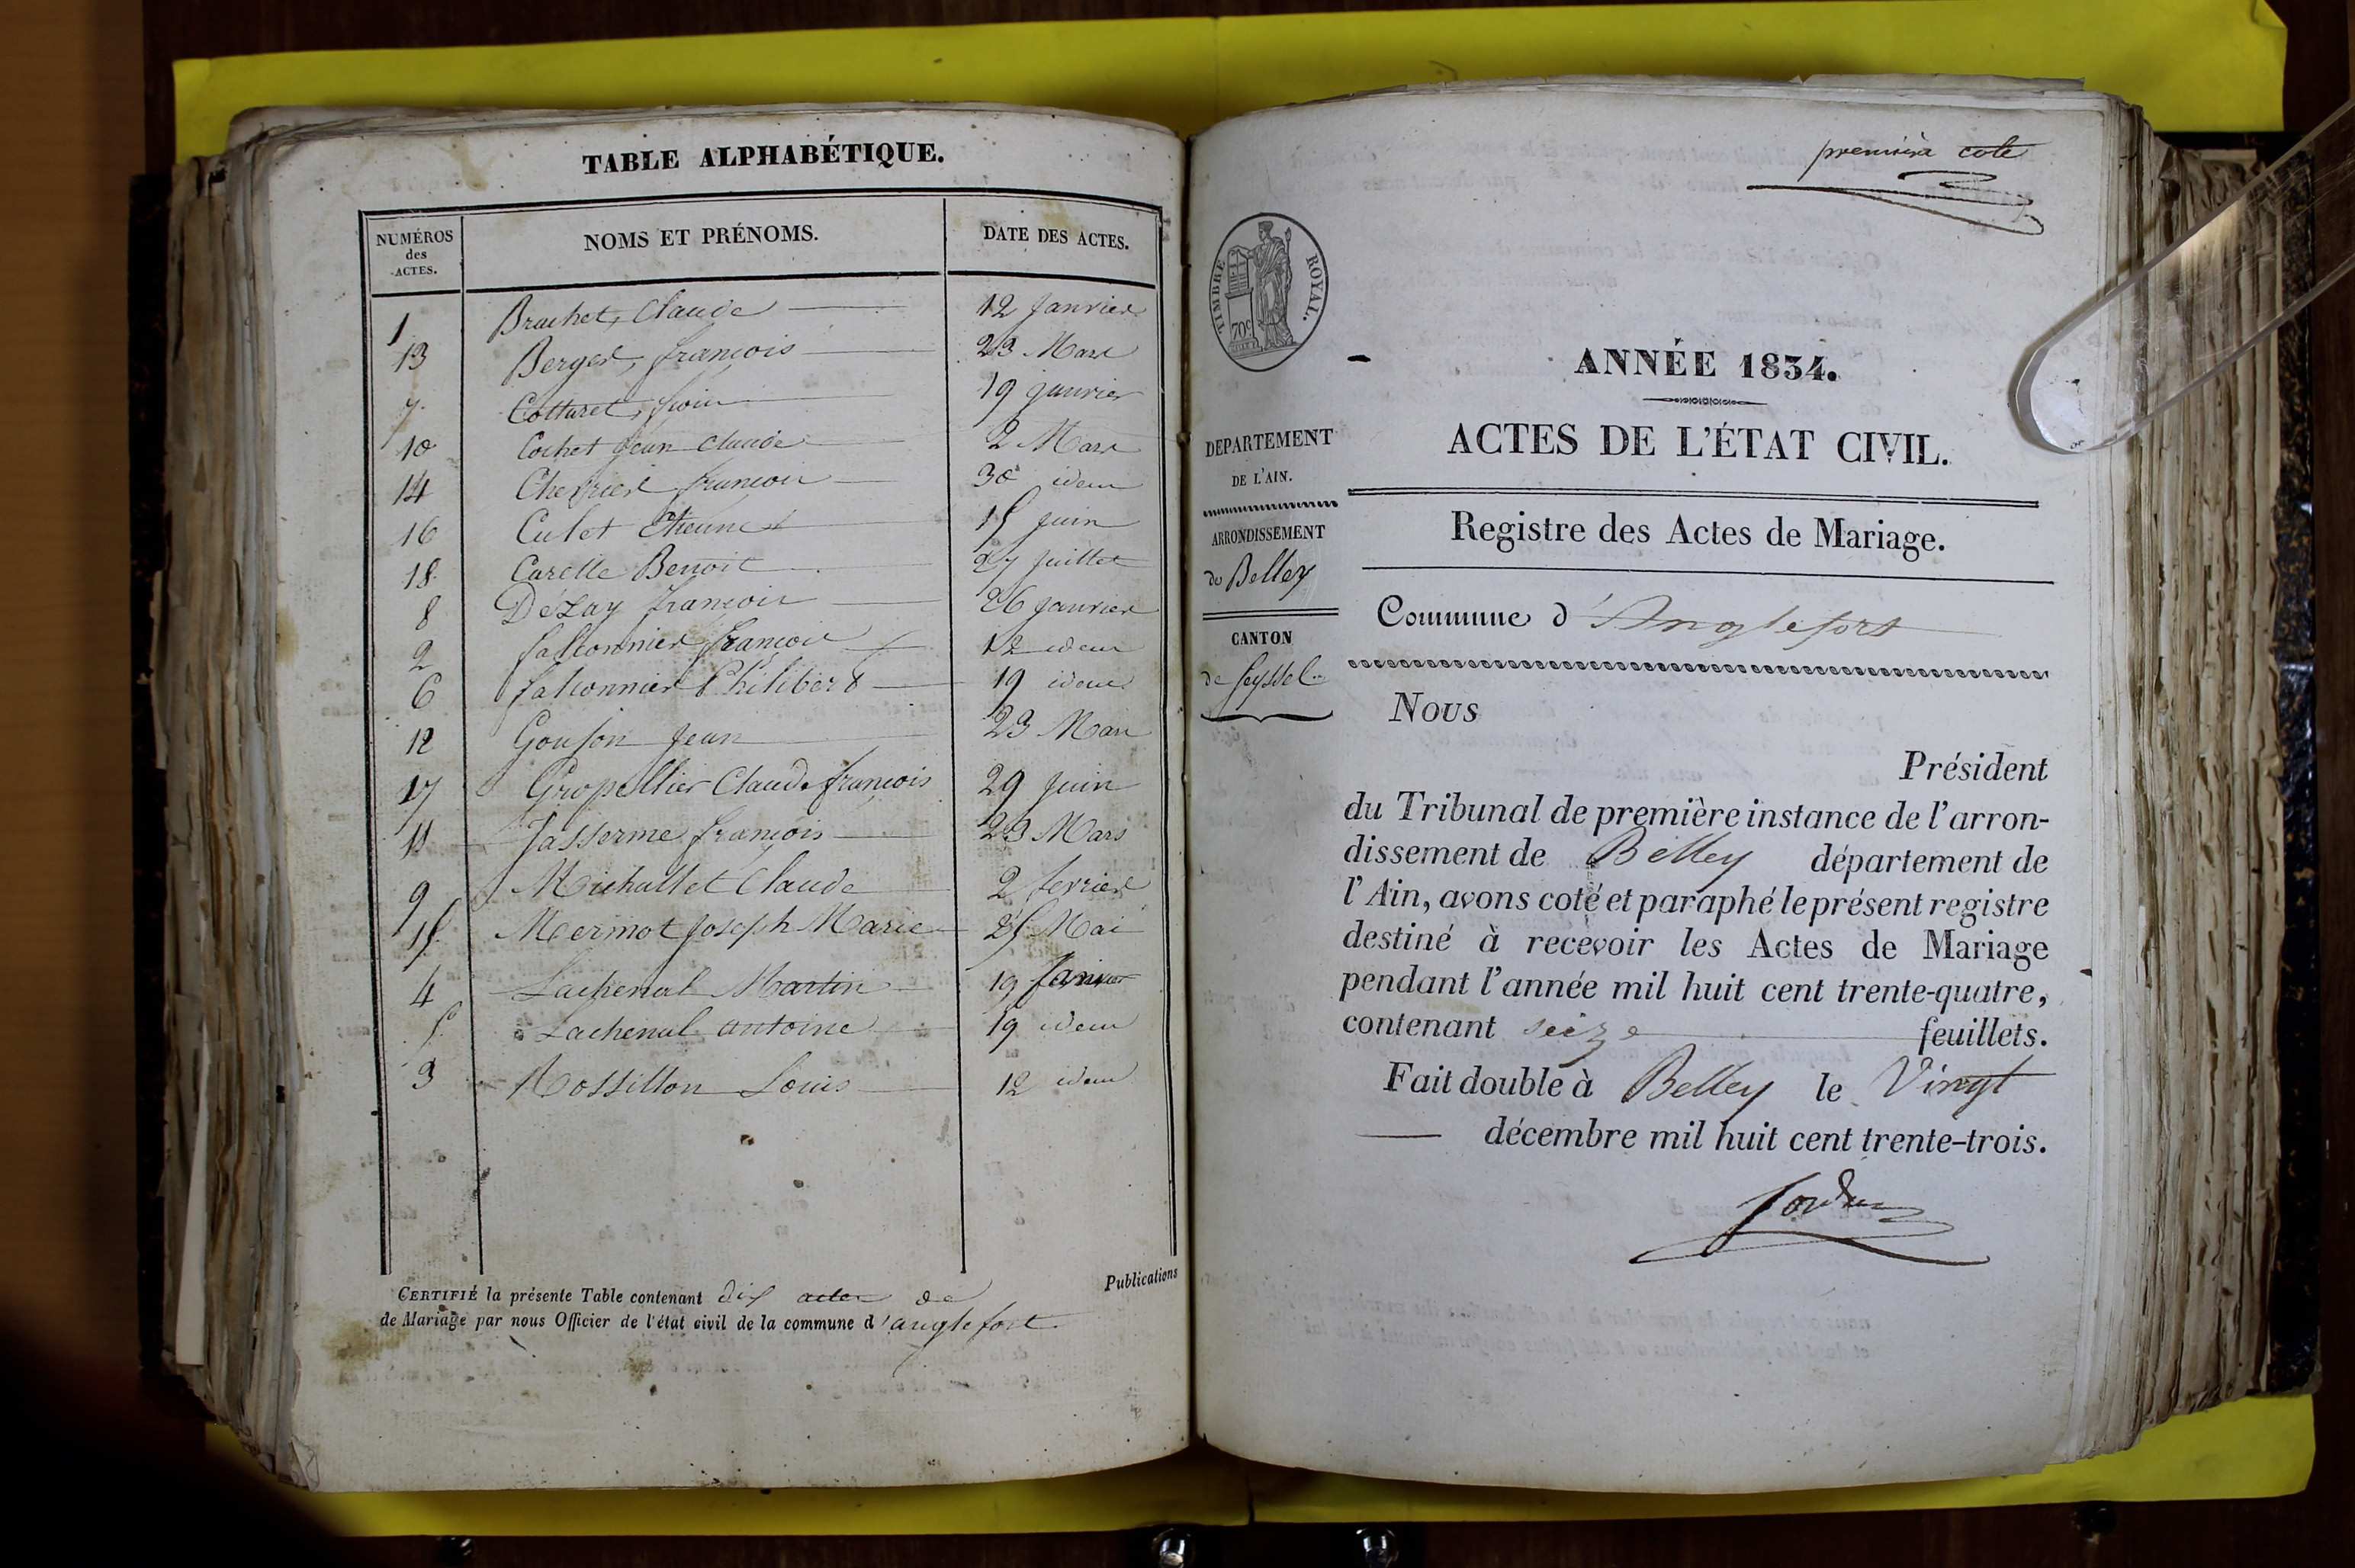 TABLE ALPHABÉTIQUE.
NUMÉROS des ACTES. NOMS ET PRÉNOMS. DATE DES ACTES.
1 Brachet, Claude 12 Janvier
13 Berger, françois 23 Mars
7 Cottaret, 19 janvier
10 Cochet jean claude 2 Mars
14 Chevrier françois 30 idem
16 Culet Etienne 15 juin
18 Carelle Benoit 27 juillet
8 Dézay françois 26 janvier
2 falconnier françois 12 idem
6 falconnier Philibert 19 idem
12 Goujon jean 23 Mars
17 Gropellier Claude françois 29 juin
11 Jasserme françois 23 Mars
9 Michallet Claude 2 fevrier
15 Mermot joseph Marie 25 Mai
4 Lachenal Martin 19 Janvier
5 Lachenal antoine 19 idem
3 Rossillon Louis 12 idem
CERTIFIÉ la présente Table contenant dix actes de Publications
de Mariage par nous Officier de l'état civil de la commune d'anglefort
première cote
TIMBRE ROYAL.
70c
ANNÉE 1834.
ACTES DE L'ÉTAT CIVIL.
DEPARTEMENT
DE L'AIN.
ARRONDISSEMENT
de Belley
CANTON
de Seyssel
Registre des Actes de Mariage.
Commune d'Anglefort
Nous
Président
du Tribunal de première instance de l'arron-
dissement de Belley département de
l'Ain, avons coté et paraphé le présent registre
destiné à recevoir les Actes de Mariage
pendant l'année mil huit cent trente-quatre,
contenant seize feuillets.
Fait double à Belley le Vingt
décembre mil huit cent trente-trois.